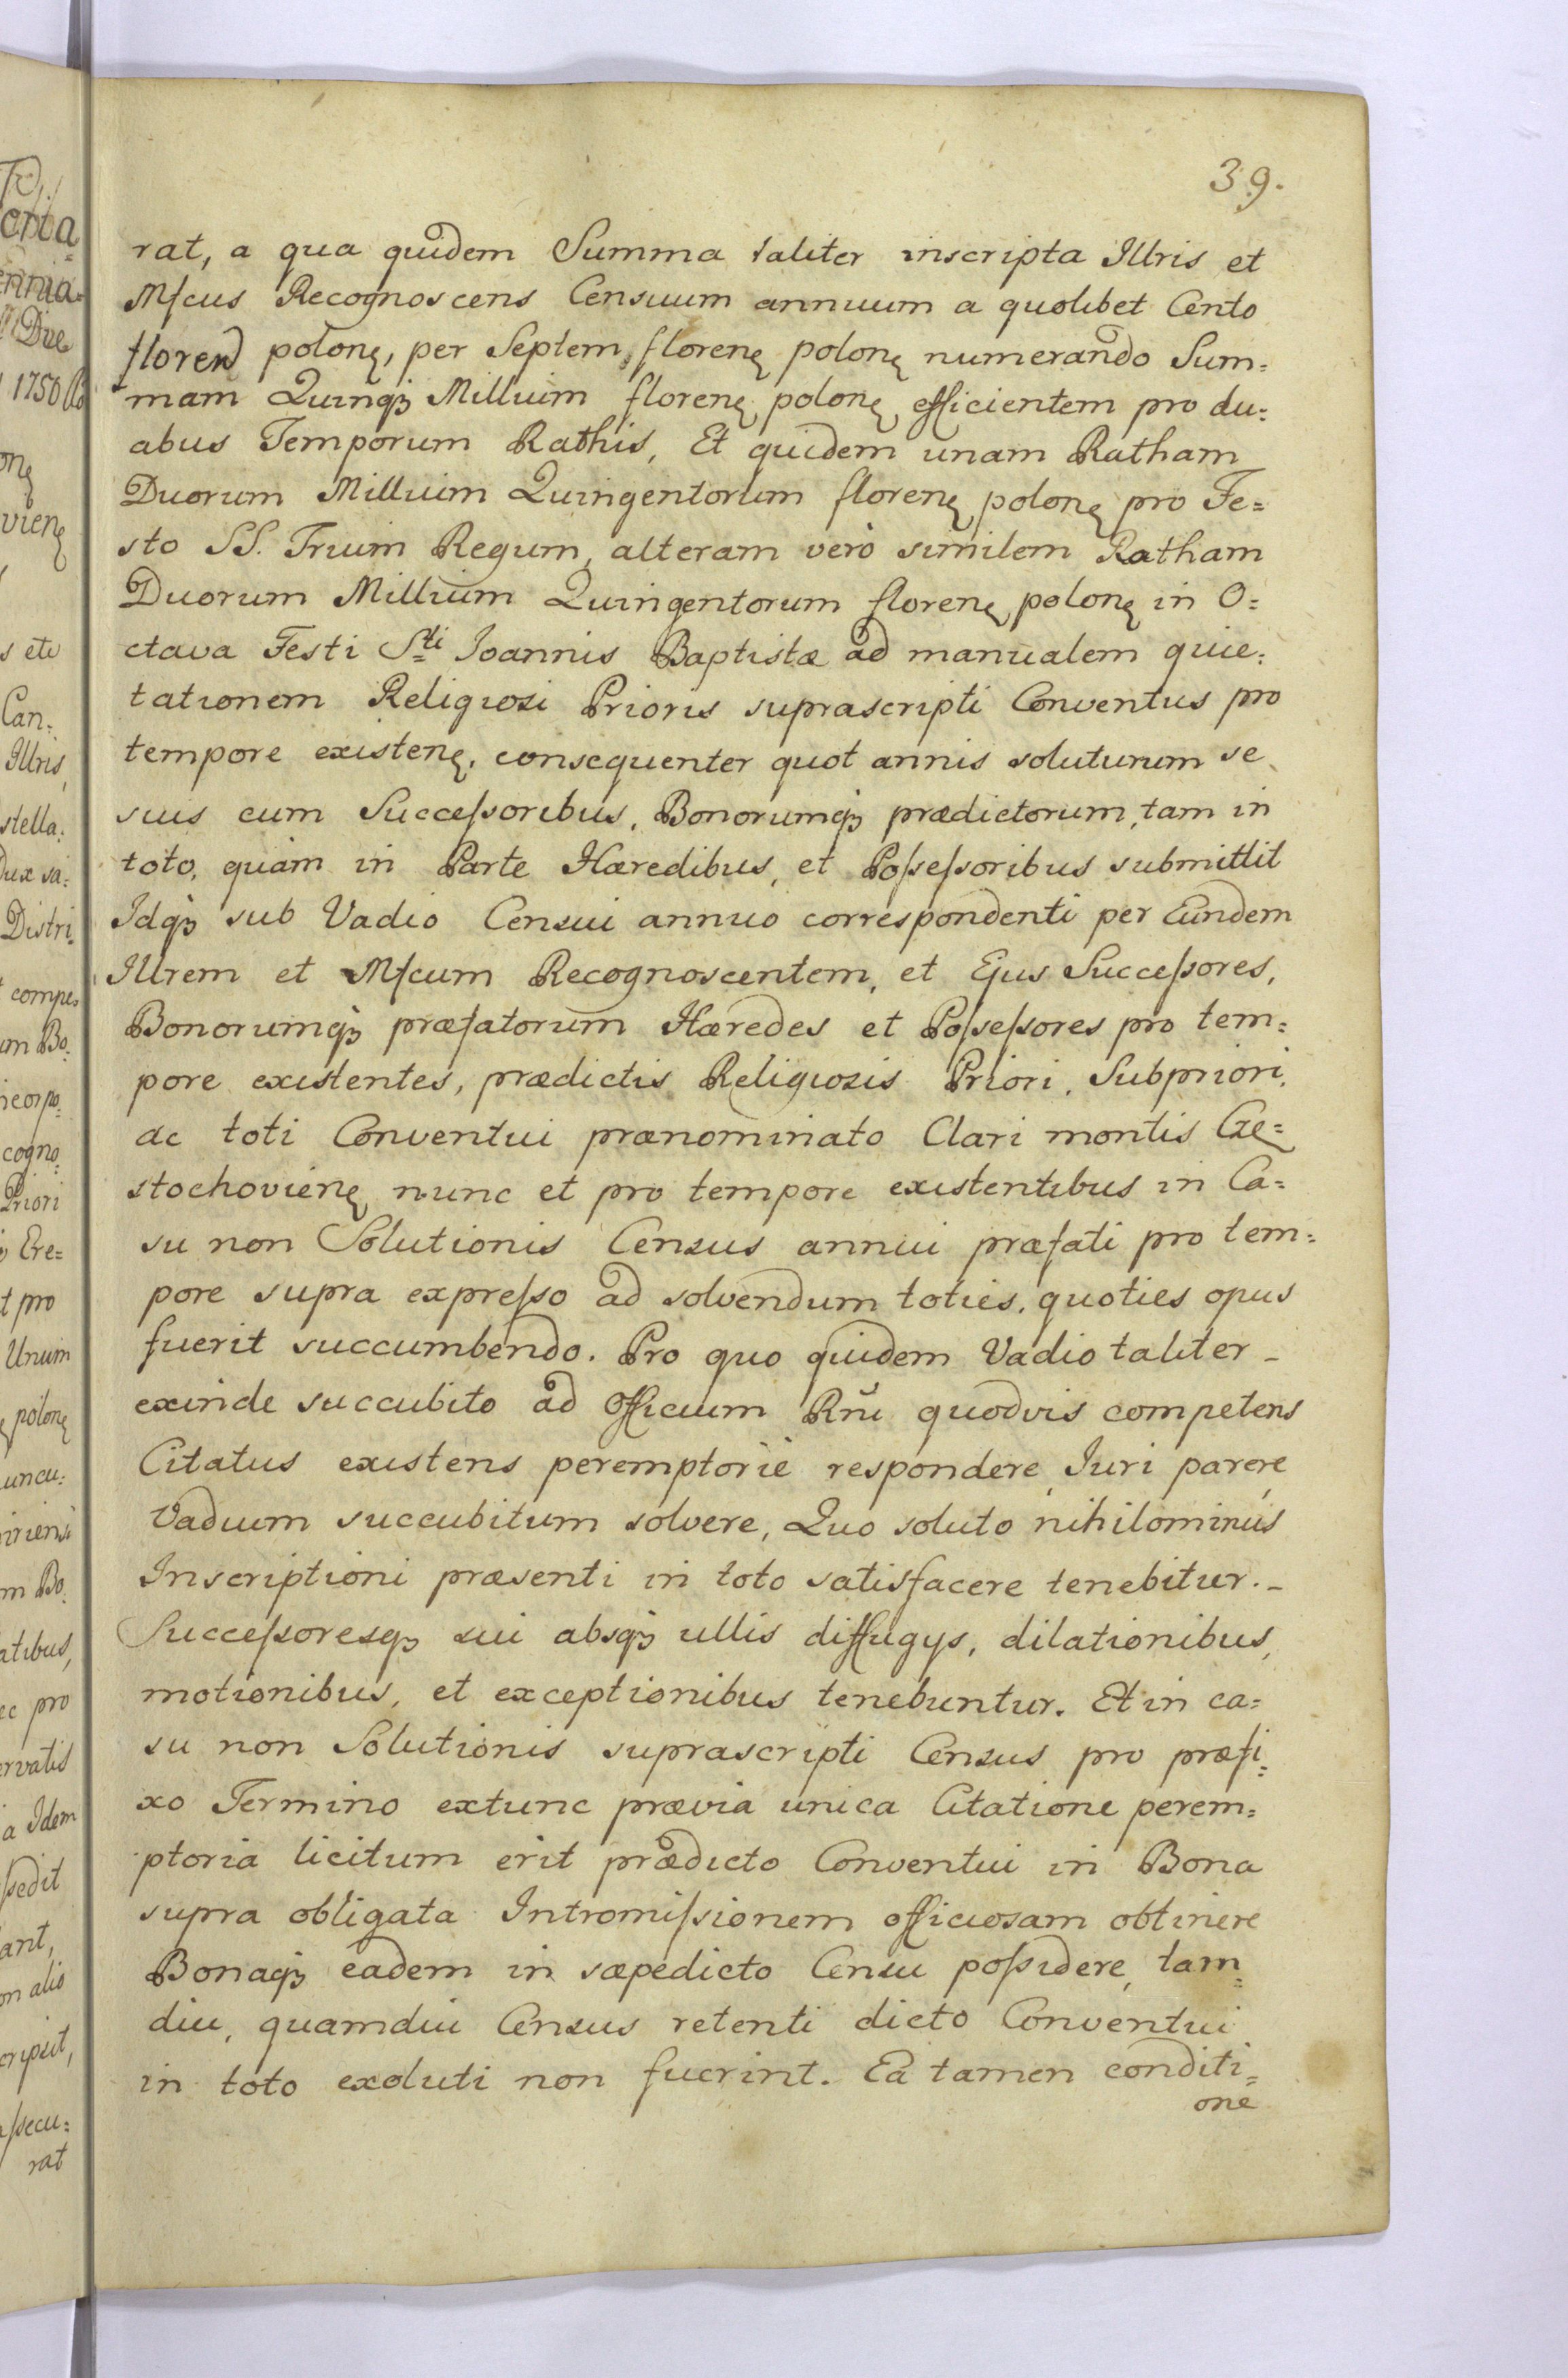 39.
rat, a qua quidem Summa taliter inscripta Illris et
Mſcus Recognoscens Censuum annuum a quolibet Cento
floren polonę, per Septem florenę polonę numerando Sum=
mam Quinqꝫ Millium florenę polonę efficientem pro du=
abus Temporum Rathis, Et quidem unam Ratham
Duorum Millium Quingentorum florenę polonę pro Fe=
sto SS. Trium Regum, alteram verò similem Ratham
Duorum Millium Quingentorum florenę polonę in O=
ctava Festi Sti Joannis Baptistæ ad manualem quie=
tationem Religiosi Prioris suprascripti Conventus pro
tempore existenę, consequenter quot annis soluturum se
suis cum Succeſsoribus, Bonorumqꝫ prædictorum, tam in
toto, quàm in Parte Hæredibus, et Poſseſsoribus submittit
Idqꝫ sub Vadio Censui annuo correspondenti per Eundem
Illrem et Mſcum Recognoscentem, et Ejus Succeſsores,
Bonorumqꝫ præfatorum Hæredes et Poſseſsores pro tem=
pore existentes, prædictis Religiosis Priori, Subpriori,
ac toti Conventui prænominato Clari montis Czę=
stochovienę nunc et pro tempore existentibus in Ca=
su non Solutionis Census annui præfati pro tem=
pore supra expreſso ad solvendum toties, quoties opus
fuerit succumbendo. Pro quo quidem Vadio taliter _
exinde succubito ad Officium Rñi quodvis competens
Citatus existens peremptoriè respondere, Juri parere,
Vadium succubitum solvere, Quo soluto nihilominus
Inscriptioni præsenti in toto satisfacere tenebitur._
Succeſsoresqꝫ sui absqꝫ ullis diffugys, dilationibus,
motionibus, et exceptionibus tenebuntur. Et in ca=
su non Solutionis suprascripti Census pro præfi=
xo Termino extunc prævia unica Citatione perem=
ptoria licitum erit prædicto Conventui in Bona
supra obligata Intromiſsionem officiosam obtinere
Bonaqꝫ eadem in sæpedicto Censu poſsidere, tam=
diu, quamdiu Census retenti dicto Conventui
in toto exoluti non fuerint. Eâ tamen conditi=
one